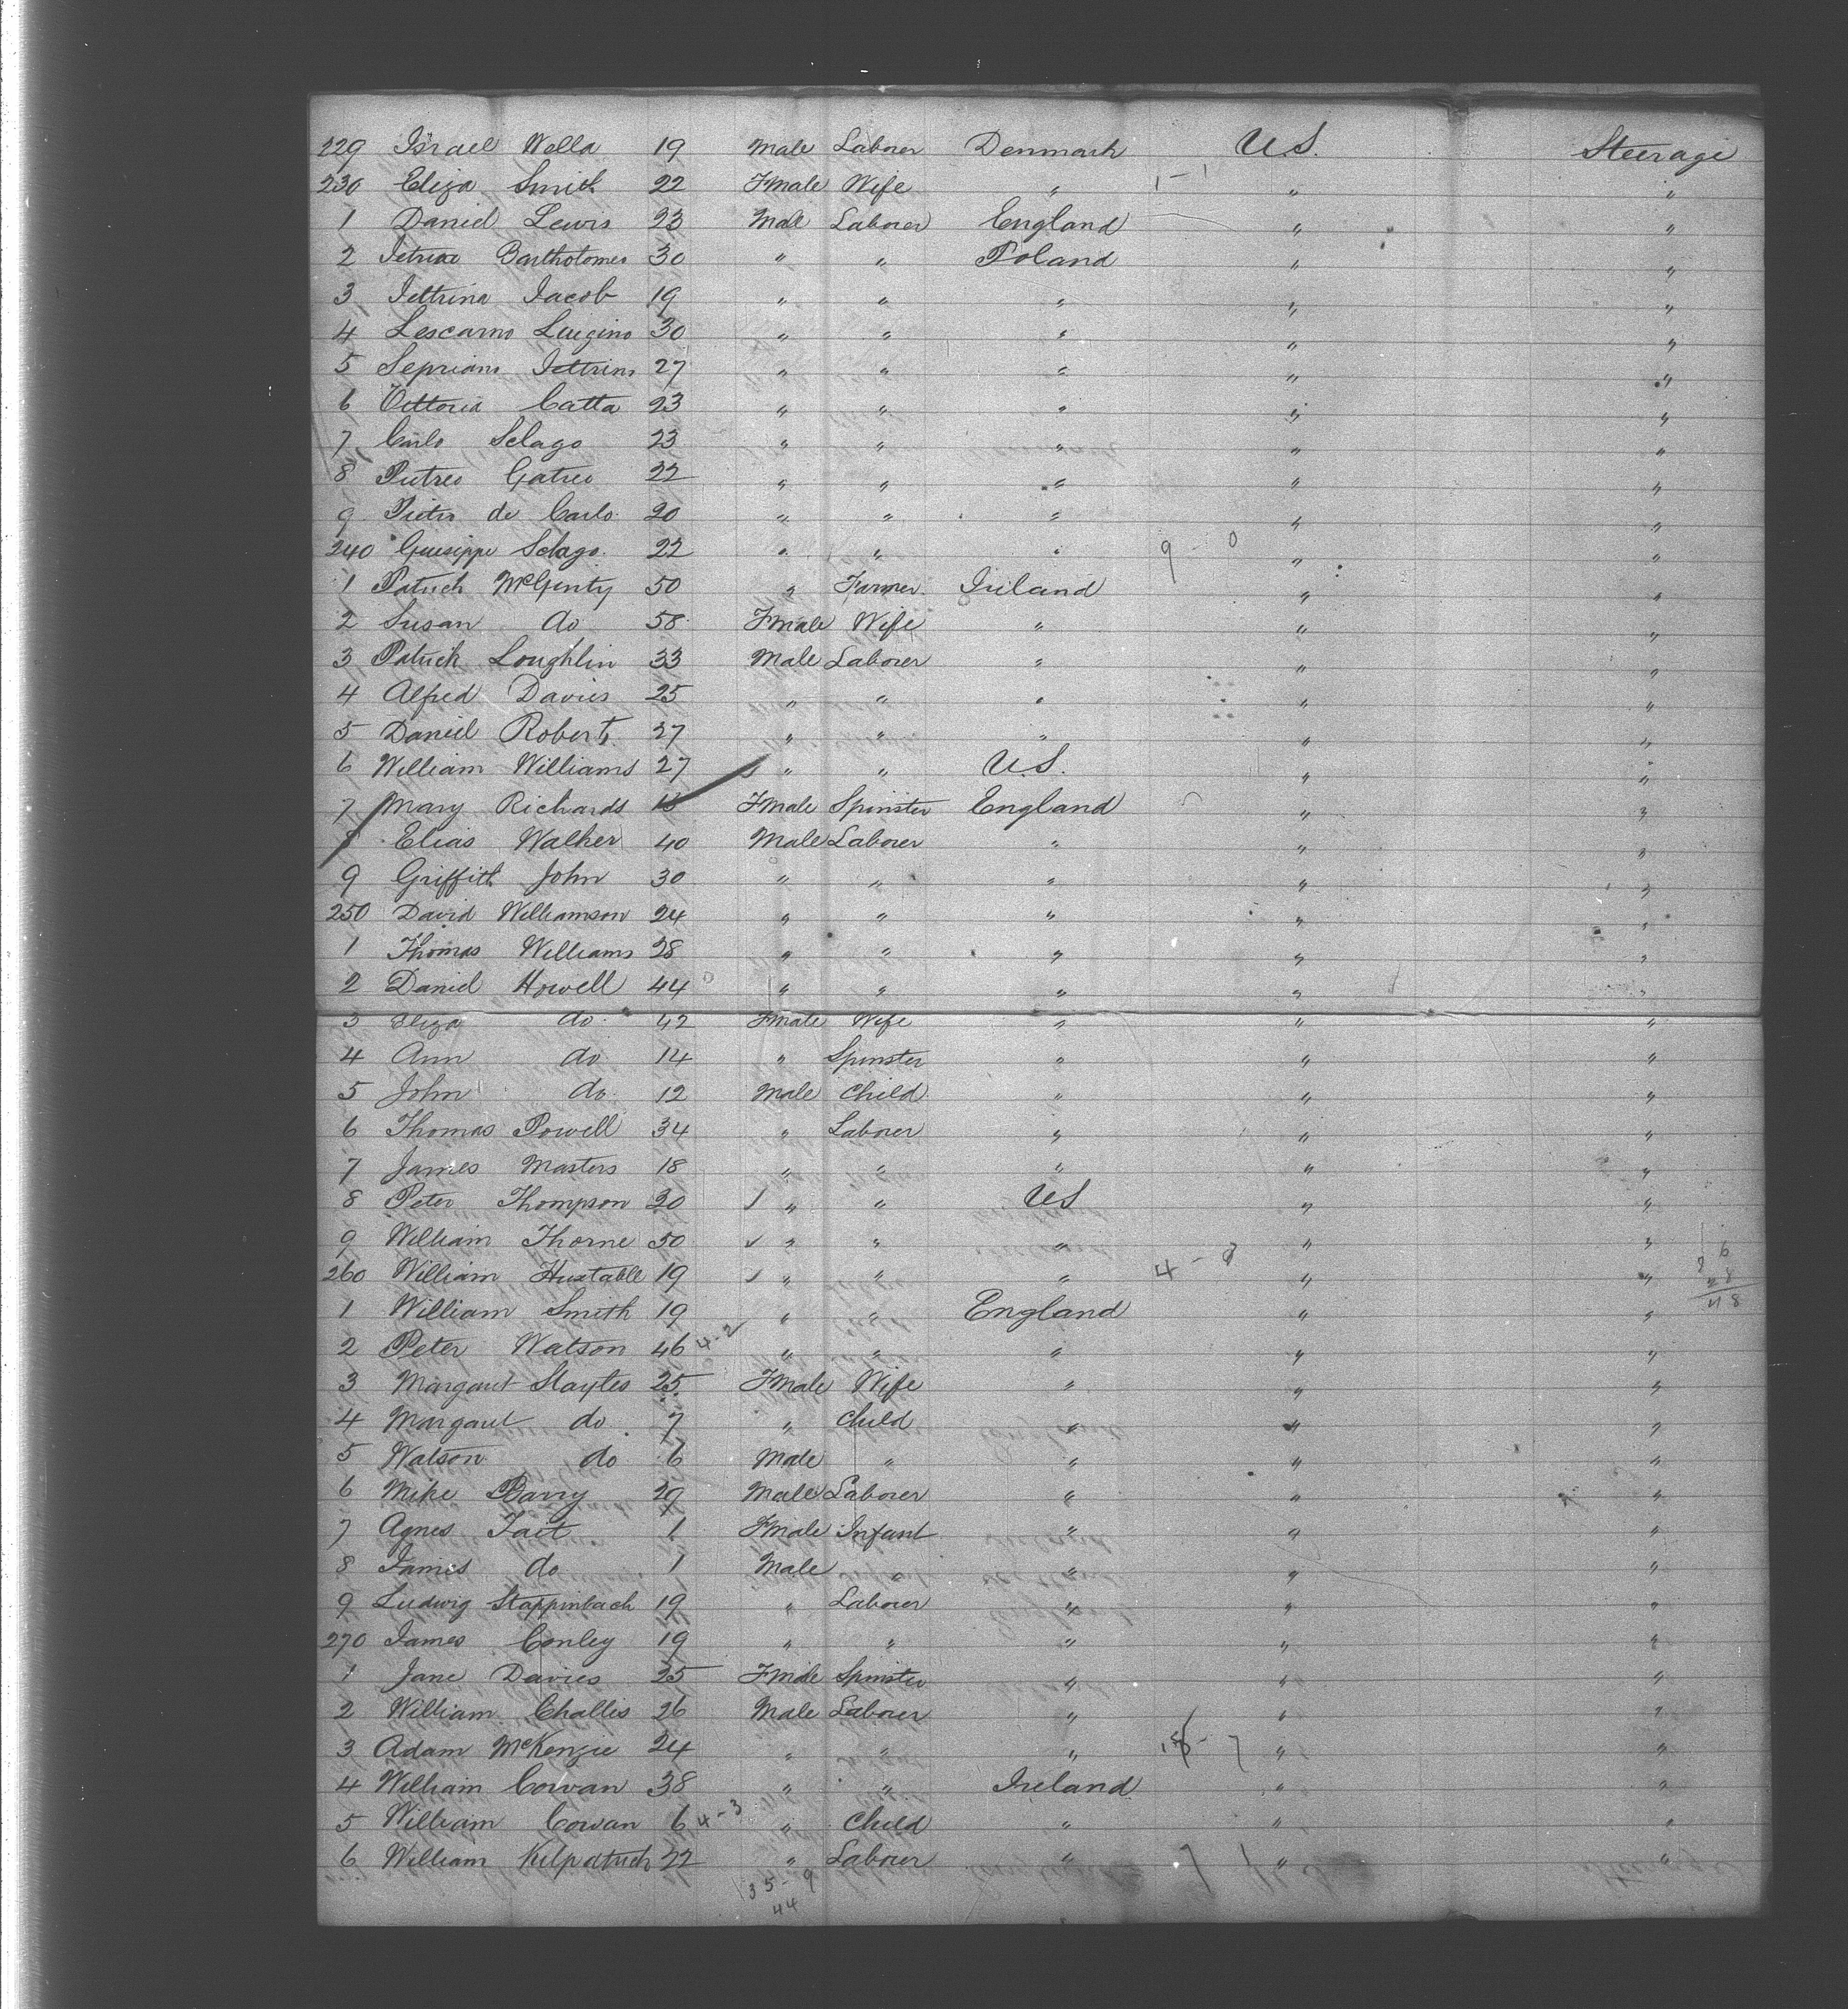 229 Israel Wella 19 Male Laborer Denmark U.S. Steerage
230 Eliza Smith 22 Fmale Wife " 1-1 " "
1 Daniel Lewis 23 Male Laborer England " "
2 Bartholomeo 30 " " Poland " "
3 Jacob 19 " " " " "
4 Luigino 30 " " " " "
5 27 " " " " "
6 Vittoria Catta 23 " " " " "
7 Carlo Selago 23 " " " " "
8 Pietreo Gatreo 22 " " " " "
9 Pietro de Carlo 20 " " " " "
240 Guiseppe Selago 22 " " " 9-0 " "
1 Patrick McGinty 50 " Farmer Ireland " "
2 Susan do 58 Fmale Wife " " "
3 Patrick Loughlin 33 Male Laborer " " "
4 Alfred Davies 25 " " " " "
5 Daniel Roberts 27 " " " " "
6 William Williams 27 " " U.S. " "
7 Mary Richards Fmale Spinster England " "
8 Elias Walker 40 Male Laborer " " "
9 Griffith John 30 " " " " "
250 David Williamson 24 " " " " "
1 Thomas Williams 28 " " " " "
2 Daniel Howell 44 " " " " "
3 Eliza do 42 Fmale Wife " " "
4 Ann do 14 " Spinster " " "
5 John do 12 Male Child " " "
6 Thomas Powell 34 " Laborer " " "
7 James Masters 18 " " " " "
8 Peter Thompson 30 " " US " "
9 William Thorne 50 " " " " "
260 William Huxtable 19 " " " 4 - " "
1 William Smith 19 " " England " "
2 Peter Watson 46 4-2 " " " " "
3 Margaret Slaytes 25 Fmale Wife " " "
4 Margaret do 7 " Child " " "
5 Watson do 6 Male " " " "
6 Mike Barry 29 Male Laborer " " "
7 Agnes Tait 1 Fmale Infant " " "
8 James do 1 Male " " " "
9 Ludwig Stappinbach 19 " Laborer " " "
270 James Conley 19 " " " " "
1 Jane Davies 25 Fmale Spinster " " "
2 William Challis 26 Male Laborer " " "
3 Adam McKenzie 24 " " " " "
4 William Cowan 38 " " Ireland " "
5 William Cowan 6 4-3 " Child " " "
6 William Kilpatrick 22 " Laborer " " "
35-9
44